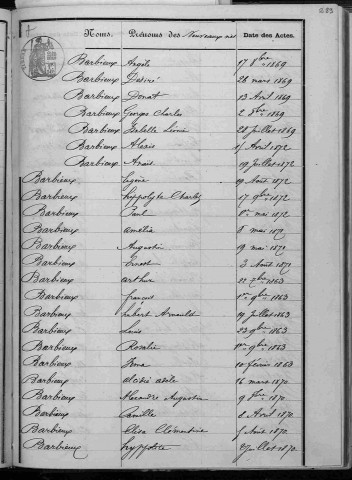 283
Noms. Prénoms des Nouveaux nés Date des Actes.
Barbieux Angèle 17 8bre 1869
Barbieux Désiré 24 mars 1869
Barbieux Donat 13 Avril 1869
Barbieux Georges Charles 2 8bre 1869
Barbieux Isabelle Léonie 28 juillet 1869
Barbieux Alexis Avril 1872
Barbieux Anaïs 19 juillet 1872
Barbieux Eugénie 19 Août 1872
Barbieux hippolyte Charles 17 9bre 1872
Barbieux Paul mai 1872
Barbieux amélie 8 mai 1871
Barbieux Augustin 19 mai 1871
Barbieux Ernest 3 Août 1871
Barbieux arthur 22 7bre 1863
Barbieux françois 9bre 1863
Barbieux hubert Arnould 19 juillet 1863
Barbieux Louis 23 9bre 1863
Barbieux Rosalie 1er 9bre 1863
Barbieux Irma 10 février 1863
Barbieux adèle 16 mars 1870
Barbieux Alexandre Augustin 9 1870
Barbieux Camille 8 Avril 1870
Barbieux Elisa Clémentine Août 1870
Barbieux hyppolite 27 juillet 1870